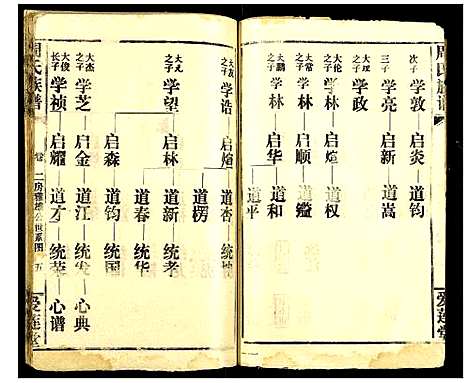 周氏族谱
爱莲堂
次子 学敦 启炎 道钧
三子 学亮 启新 道嵩
之子 学政
大伦之子 学林 启煊 道权
大常之子 学林 启顺 道鑑
大鹏之子 学林 启华 道和
道平
之子 学诰 启煊 道杏 统
道楞
之子 学望 启林 道新 统孝
道春 统华
启森 道钧 统国
大杰之子 学芝 启金 道江 统发 心典
大俊长子 学祯 启耀 道才 统荣 心谱
周氏族谱
二房 公世系图 五
爱莲堂